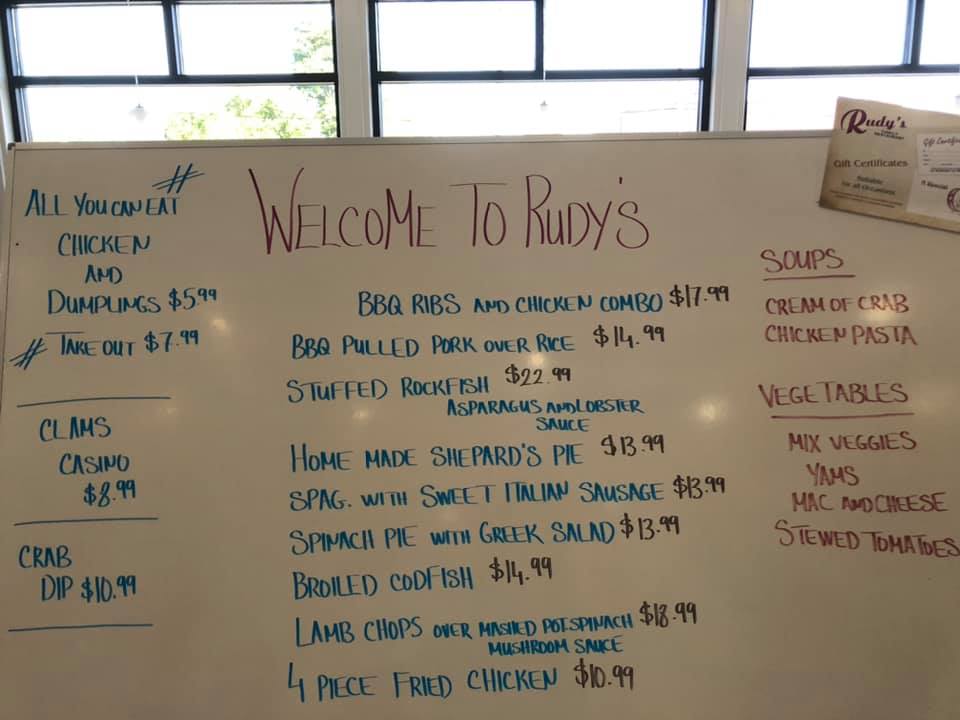 #
ALL YOU CAN EAT
CHICKEN
AND
DUMPLINGS $5.99
# TAKE OUT $7.99
CLAMS
CASINO
$8.99
CRAB
DIP $10.99
WELCOME TO RUDY'S
BBQ RIBS AND CHICKEN COMBO $17.99
BBQ PULLED PORK OVER RICE $14.99
STUFFED ROCKFISH $22.99
ASPARAGUS AND LOBSTER
SAUCE
HOME MADE SHEPARD'S PIE $13.99
SPAG. WITH SWEET ITALIAN SAUSAGE $13.99
SPINACH PIE WITH GREEK SALAD $13.99
BROILED CODFISH $14.99
LAMB CHOPS OVER MASHED POT. SPINACH $18.99
MUSHROOM SAUCE
4 PIECE FRIED CHICKEN $10.99
Rudy's
RESTAURANT
Gift Certificates
Suitable
for all Occasions
SOUPS
CREAM OF CRAB
CHICKEN PASTA
VEGETABLES
MIX VEGGIES
YAMS
MAC AND CHEESE
STEWED TOMATOES